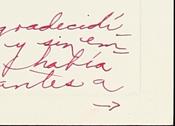 gradecidí
y sin em-
había
antes a
→